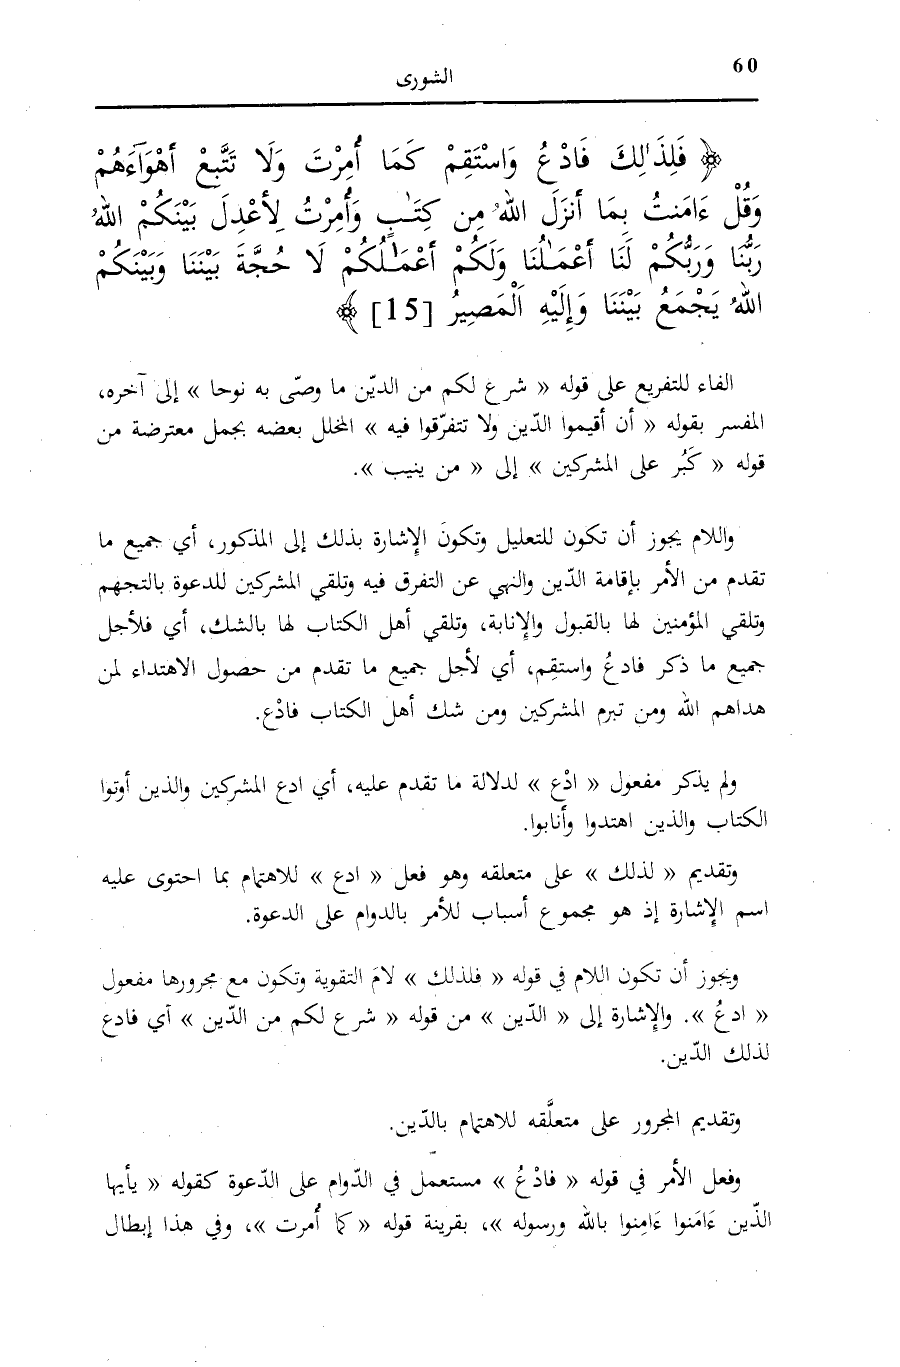 60
الشورى
﴿ فَلِذَٰلِكَ فَادْعُ وَاسْتَقِمْ كَمَا أُمِرْتَ وَلَا تَتَّبِعْ أَهْوَآءَهُمْ
وَقُلْ ءَامَنتُ بِمَا أَنزَلَ اللهُ مِن كِتَٰبٍ وَأُمِرْتُ لِأَعْدِلَ بَيْنَكُمْ اللهُ
رَبُّنَا وَرَبُّكُمْ لَنَا أَعْمَٰلُنَا وَلَكُمْ أَعْمَٰلُكُمْ لَا حُجَّةَ بَيْنَنَا وَبَيْنَكُمْ
اللهُ يَجْمَعُ بَيْنَنَا وَإِلَيْهِ الْمَصِيرُ [15] ﴾
الفاء للتفريع على قوله « شرع لكم من الديّن ما وصّى به نوحا » إلى آخره،
المفسر بقوله « أن أقيموا الدّين ولا تتفرّقوا فيه » المخلل بعضه بجمل معترضة من
قوله « كَبُر على المشركين » إلى « من ينيب ».
واللام يجوز أن تكون للتعليل وتكونَ الإشارة بذلك إلى المذكور، أي جميع ما
تقدم من الأمر بإقامة الدّين والنهي عن التفرق فيه وتلقي المشركين للدعوة بالتجهم
وتلقي المؤمنين لها بالقبول والإنابة، وتلقي أهل الكتاب لها بالشك، أي فلأجل
جميع ما ذكر فادعُ واستقِم، أي لأجل جميع ما تقدم من حصول الاهتداء لمن
هداهم الله ومن تبرم المشركين ومن شك أهل الكتاب فادْع.
ولم يذكر مفعول « ادْع » لدلالة ما تقدم عليه، أي ادع المشركين والذين أوتوا
الكتاب والذين اهتدوا وأنابوا.
وتقديم « لذلك » على متعلقه وهو فعل « ادع » للاهتمام بما احتوى عليه
اسم الإشارة إذ هو مجموع أسباب للأمر بالدوام على الدعوة.
ويجوز أن تكون اللام في قوله « فلذلك » لامَ التقوية وتكون مع مجرورها مفعول
« ادعُ ». والإشارة إلى « الدّين » من قوله « شرع لكم من الدّين » أي فادع
لذلك الدّين.
وتقديم المجرور على متعلَّقه للاهتمام بالدّين.
وفعل الأمر في قوله « فادْعُ » مستعمل في الدّوام على الدّعوة كقوله « يأيها
الذّين ءَامَنوا ءَامِنوا بالله ورسوله »، بقرينة قوله « كما أُمرت »، وفي هذا إبطال